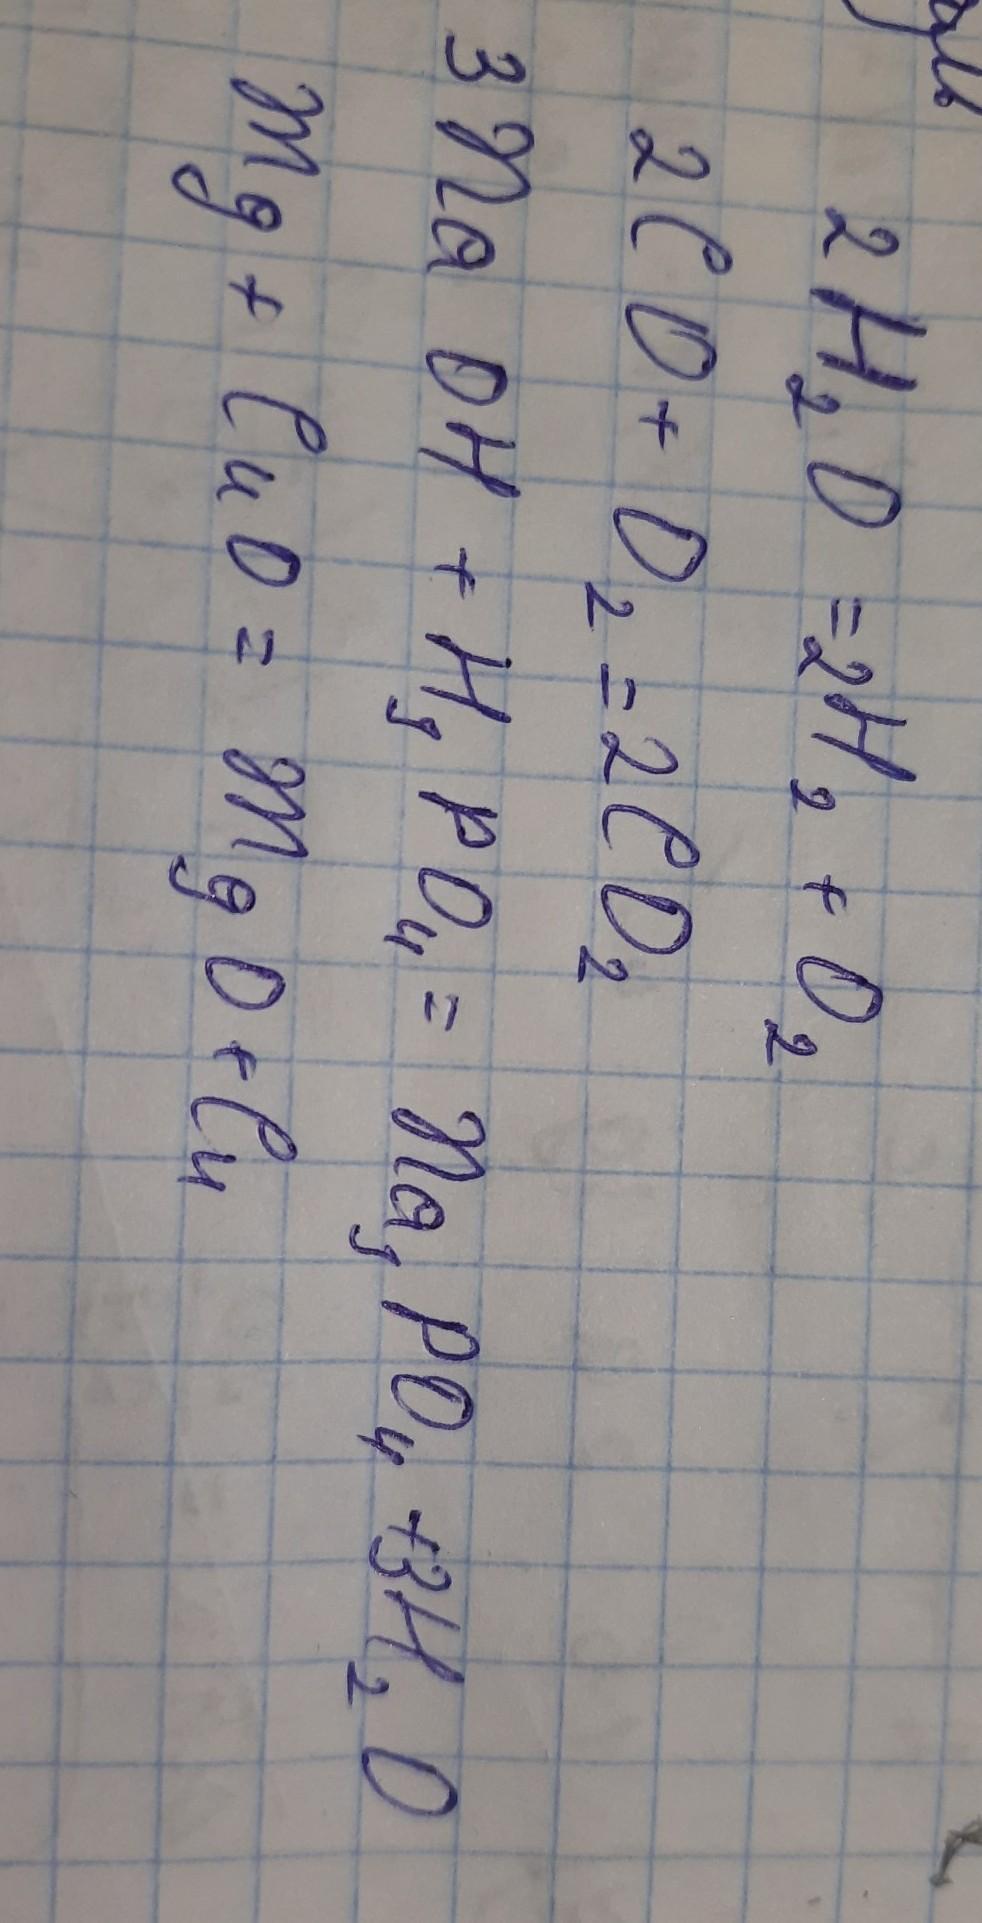 2H₂O = 2H₂ + O₂
2CO + O₂ = 2CO₂
3NaOH + H₃PO₄ = Na₃PO₄ + 3H₂O
Mg + CuO = MgO + Cu